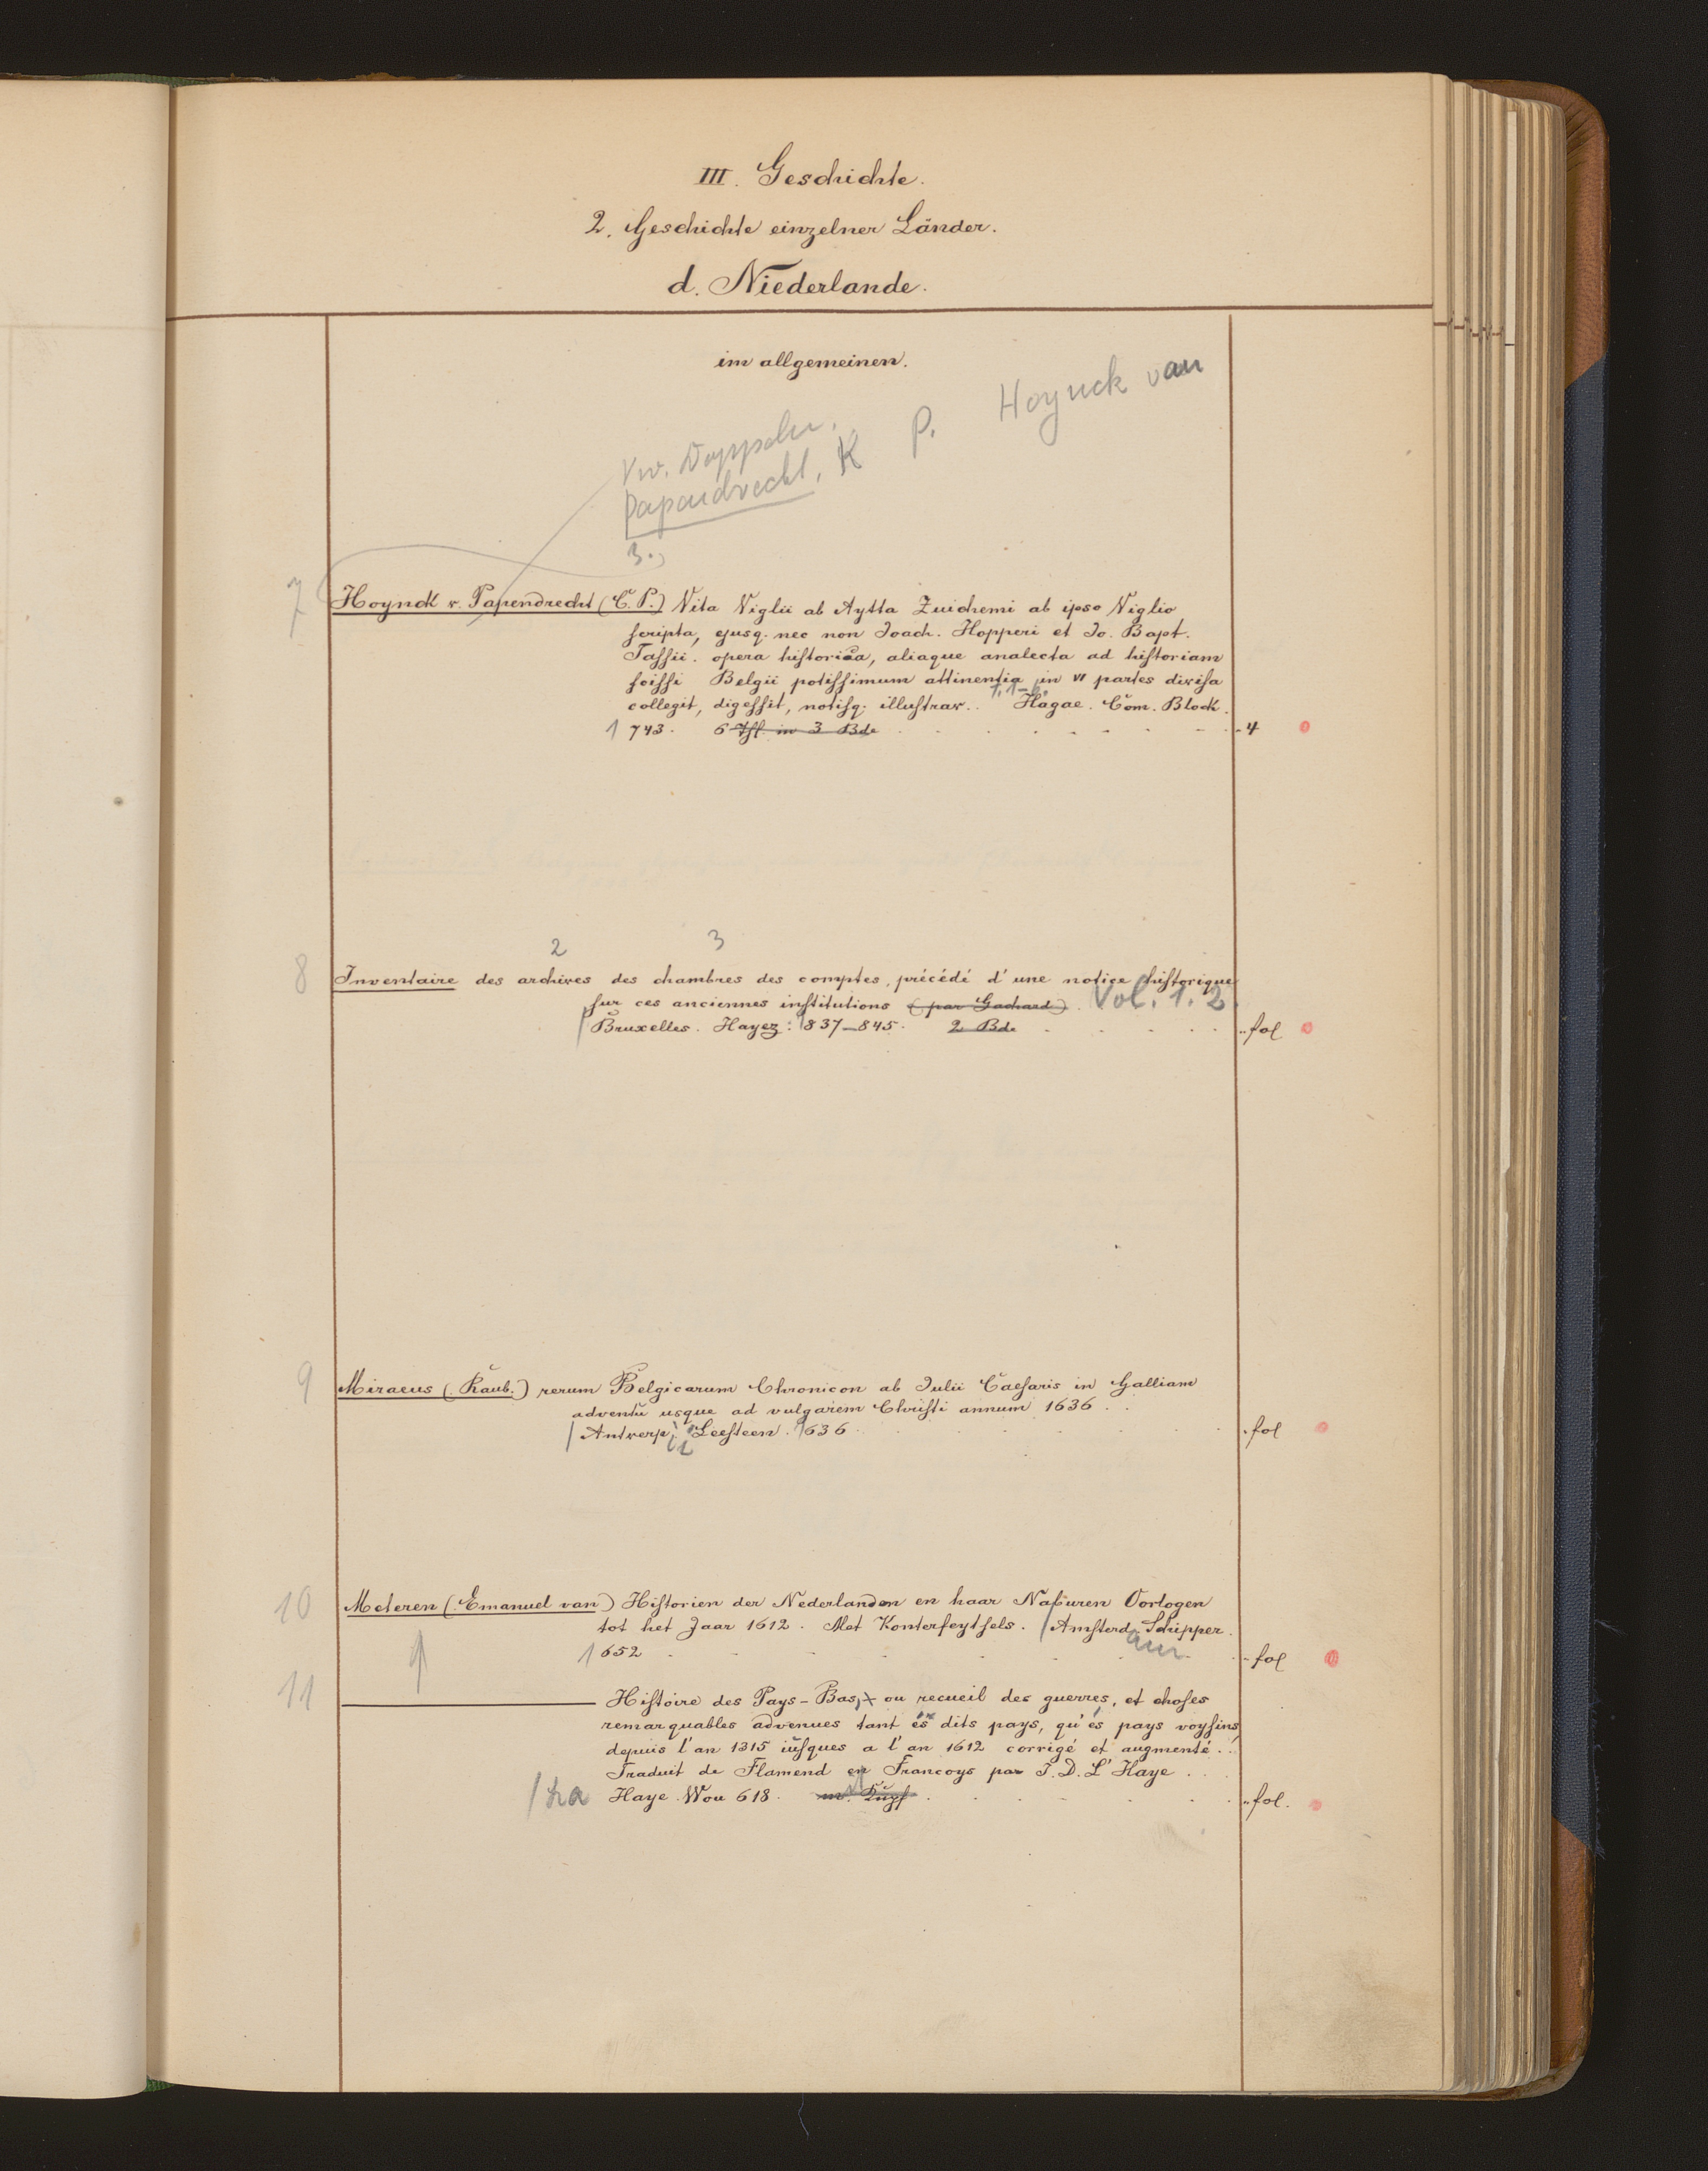 III. Geschichte.
2. Geschichte einzelner Länder.
d. Niederlande.
im allgemeinen.
Hoynck van
P.
Vw. Doppeln.
Papendrecht, K
3.,
7 Hoynck v. Papendrecht (C. P.) Vita Viglii ab Aytta Zuichemi ab ipso Viglio
scripta, ejusq. nec non Joach. Hopperi et Jo. Bapt.
Tassii. opera historica, aliaque analecta ad historiam
scissi Belgii potissimum attinentia in VI partes divisa
collegit, digessit, notisq. illustrav.. Hagae. Com. Block.
1743. 6 Thl. in 3 Bde 4
2 3
8 Inventaire des archives des chambres des comptes, précédé d'une notice historique
sur ces anciennes institutions (par Gachard). Vol. 1. 2
Bruxelles. Hayez: 1837–845. 2 Bde fol
9 Miraeus (Raub.) rerum Belgicarum Chronicon ab Julii Caesaris in Galliam
adventu usque ad vulgarem Christi annum 1636 ..
Antwerp: Leesteen. 1636 fol
10 Meteren (Emanuel van) Historien der Nederlanden en haar Naburen Oorlogen
tot het Jaar 1612. Met Konterfeytsels. Amsterdam Schipper.
1652 fol
11 ——— Histoire des Pays-Bas, ou recueil des guerres, et choses
remarquables advenues tant és dits pays, qu'és pays voysins,
depuis l'an 1315 iusques a l'an 1612 corrigé et augmenté ..
Traduit de Flamend en Francoys par J. D. L' Haye ..
La Haye. Wou 618. m. Kupf fol.